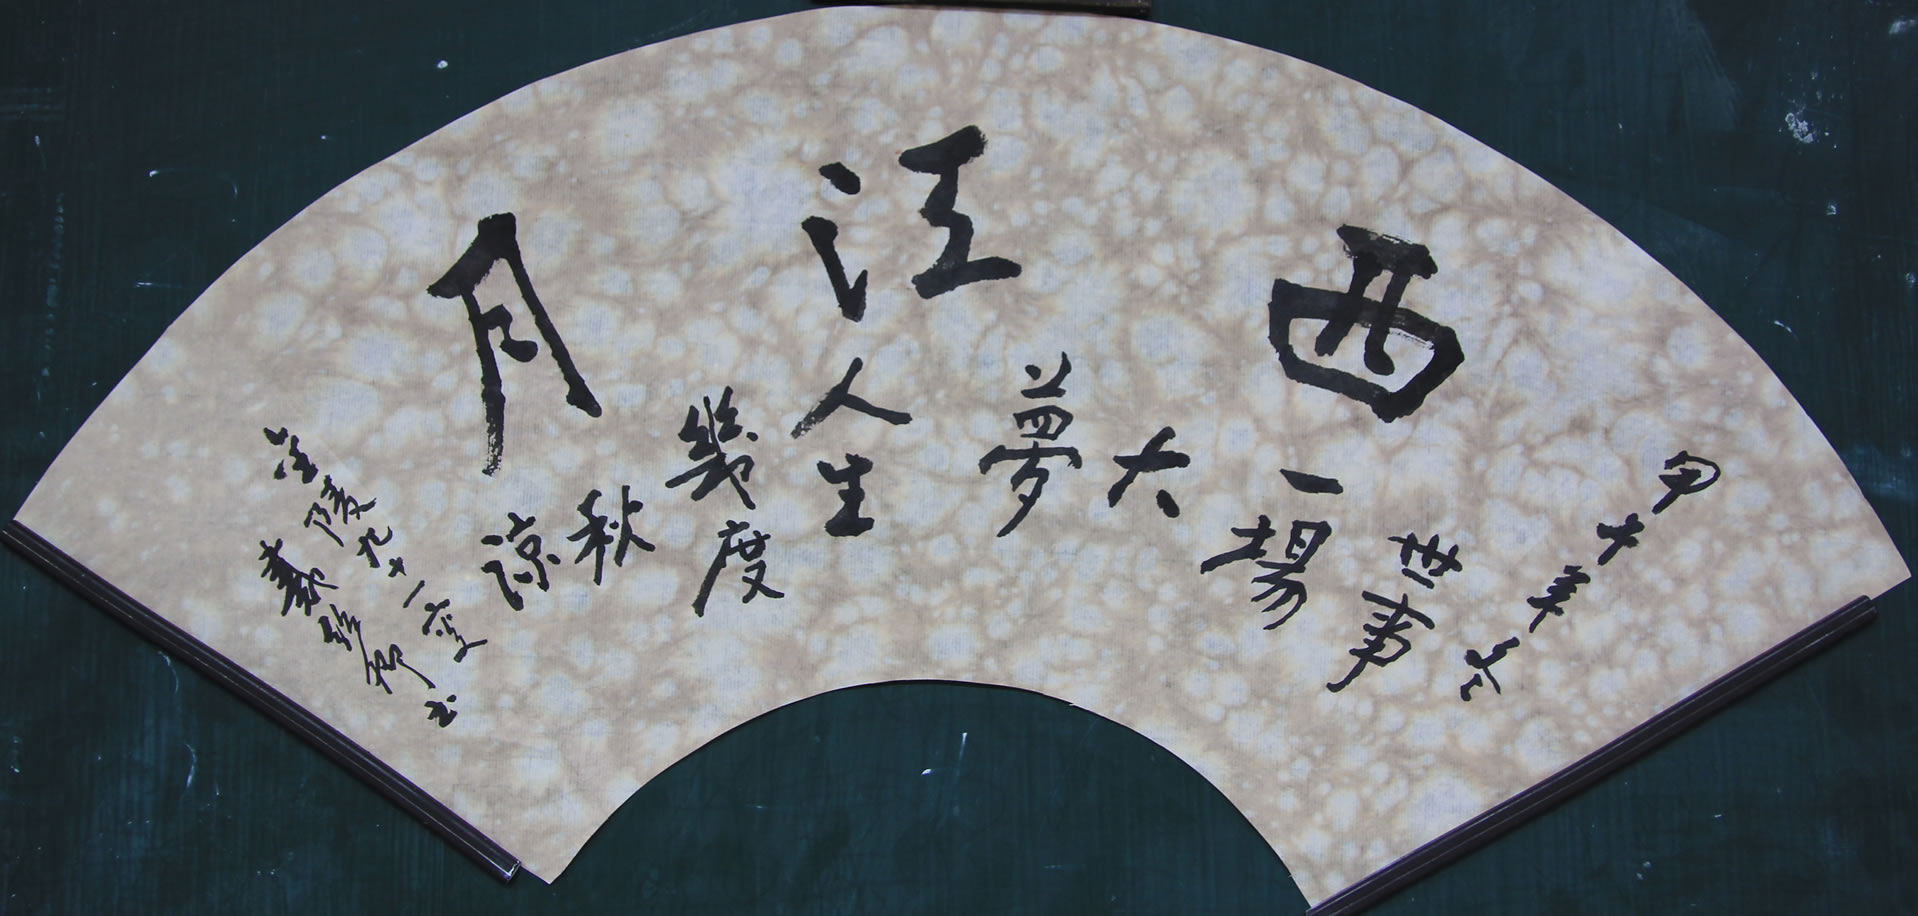 西江月
甲午年冬
世事
一場
大
夢
人生
幾度
秋
涼
金陵九十一叟